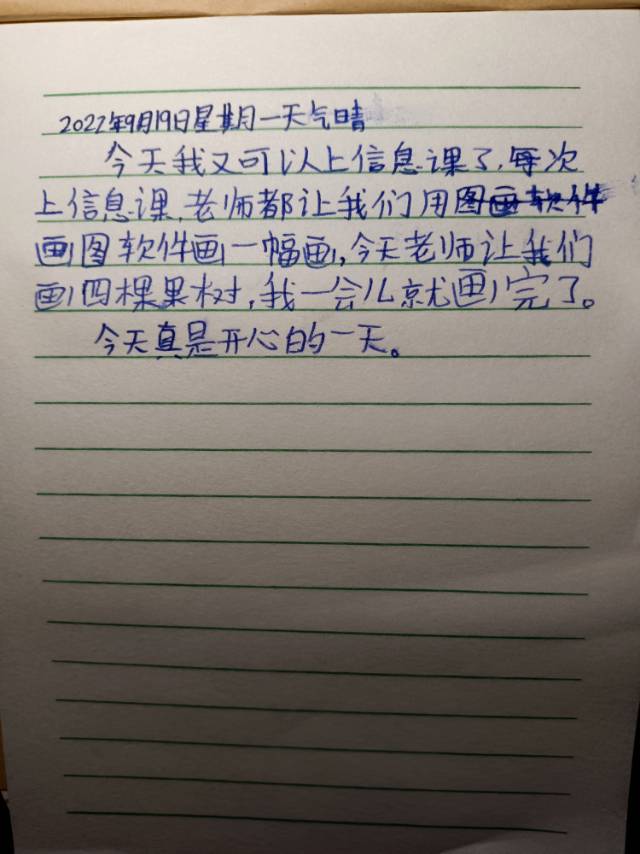 2022年9月19日星期一天气晴
今天我又可以上信息课了,每次
上信息课,老师都让我们用图画软件
画图软件画一幅画,今天老师让我们
画四棵果树,我一会儿就画完了。
今天真是开心的一天。